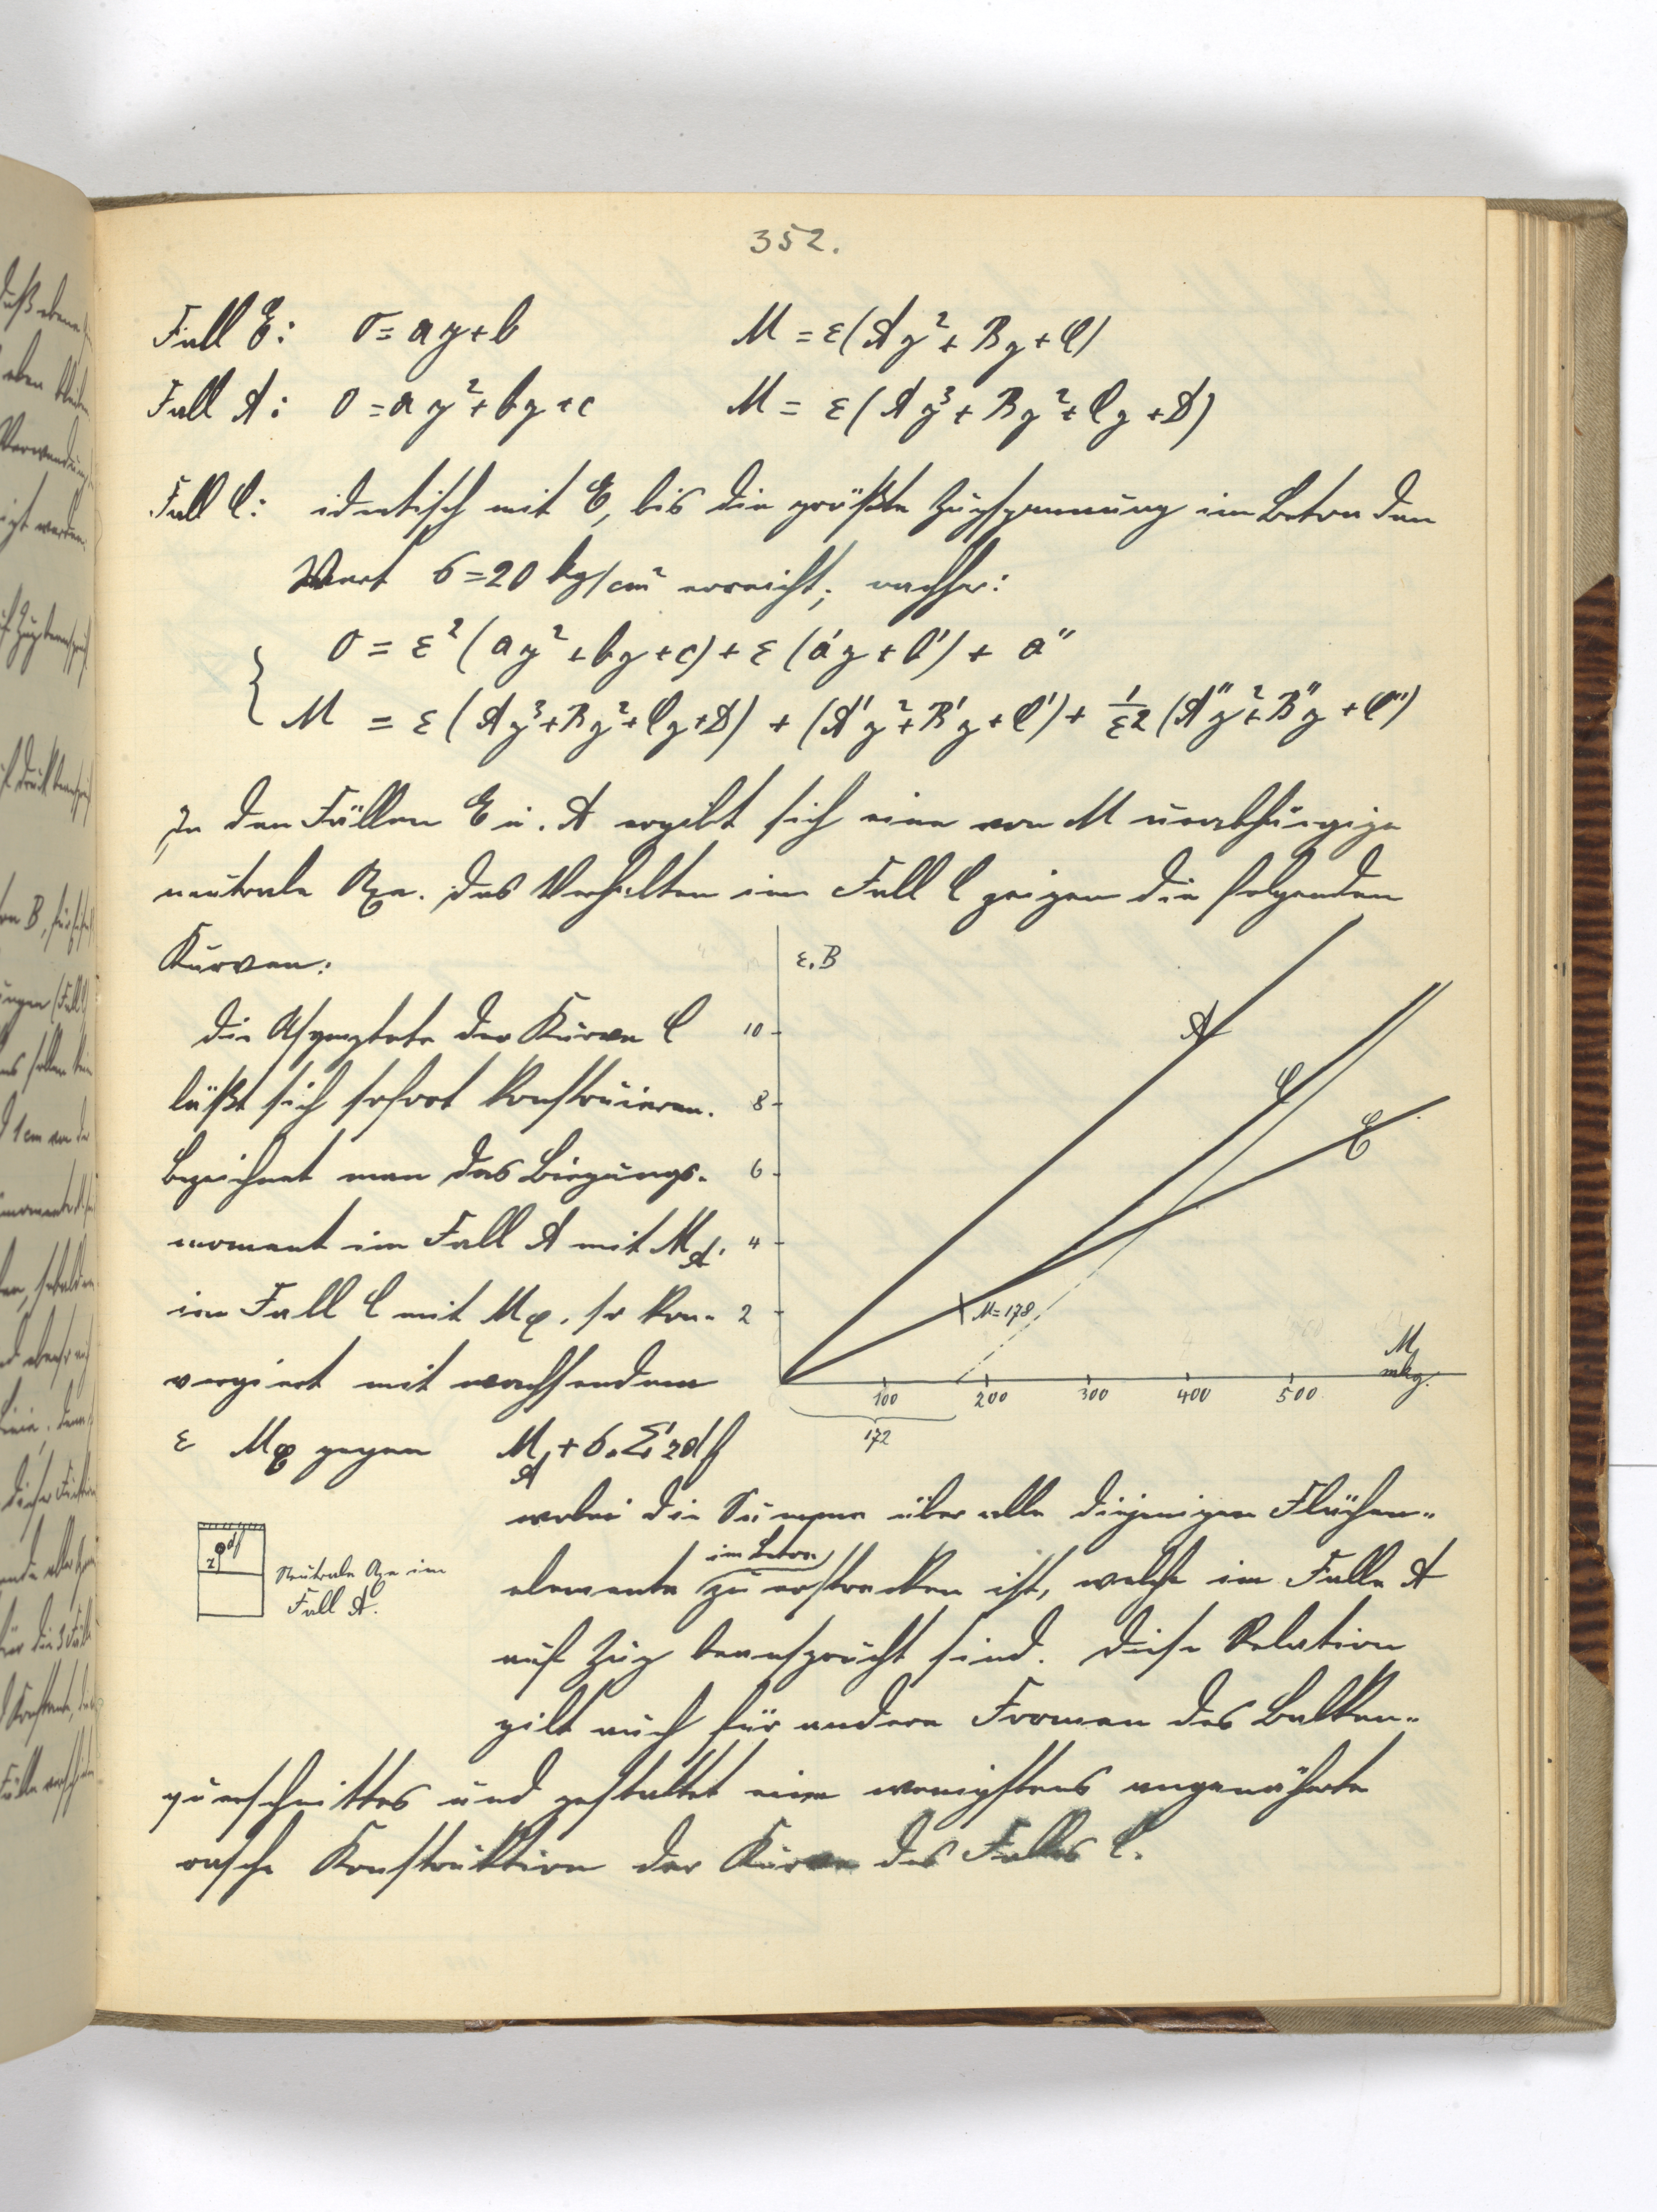 352.
Fall E: 0 = ay + b M = ε(Ay² + By + C)
Fall A: 0 = ay² + by + c M = ε(Ay³ + By² + Cy + D)
Fall C: identisch mit E, bis die größte Zugspannung im Beton den
Wert σ = 20 kg/cm² erreicht; nachher:
0 = ε²(ay² + by + c) + ε(a'y + b') + a"
M = ε(Ay³ + By² + Cy + D) + (A'y² + B'y + C') + 1/ε2 (A"y² + B"y + C")
In den Fällen E u. A ergibt sich eine von M unabhängige
neutrale Axe. Das Verhalten im Fall C zeigen die folgenden
Kurven:
Die Asymptote der Kurve C
läßt sich sofort konstruieren.
Bezeichnet man das Biegungs-
moment im Fall A mit M_A,
im Fall C mit M_C, so kon-
vergiert mit wachsendem
ε M_C gegen M_A + σ₀ Σ z df
wobei die Summe über alle diejenigen Flächen-
elemente im Beton zu erstrecken ist, welche im Falle A
auf Zug beansprucht sind. Diese Relation
gilt auch für andere Formen des Balken-
querschnittes und gestattet eine wenigstens angenäherte
rasche Konstruktion der Kurve des Falles C.
ε. B
10
8
6
4
2
A
C
E
M = 178
100 200 300 400 500
M
mkg.
172
z df
Neutrale Axe im
Fall A.